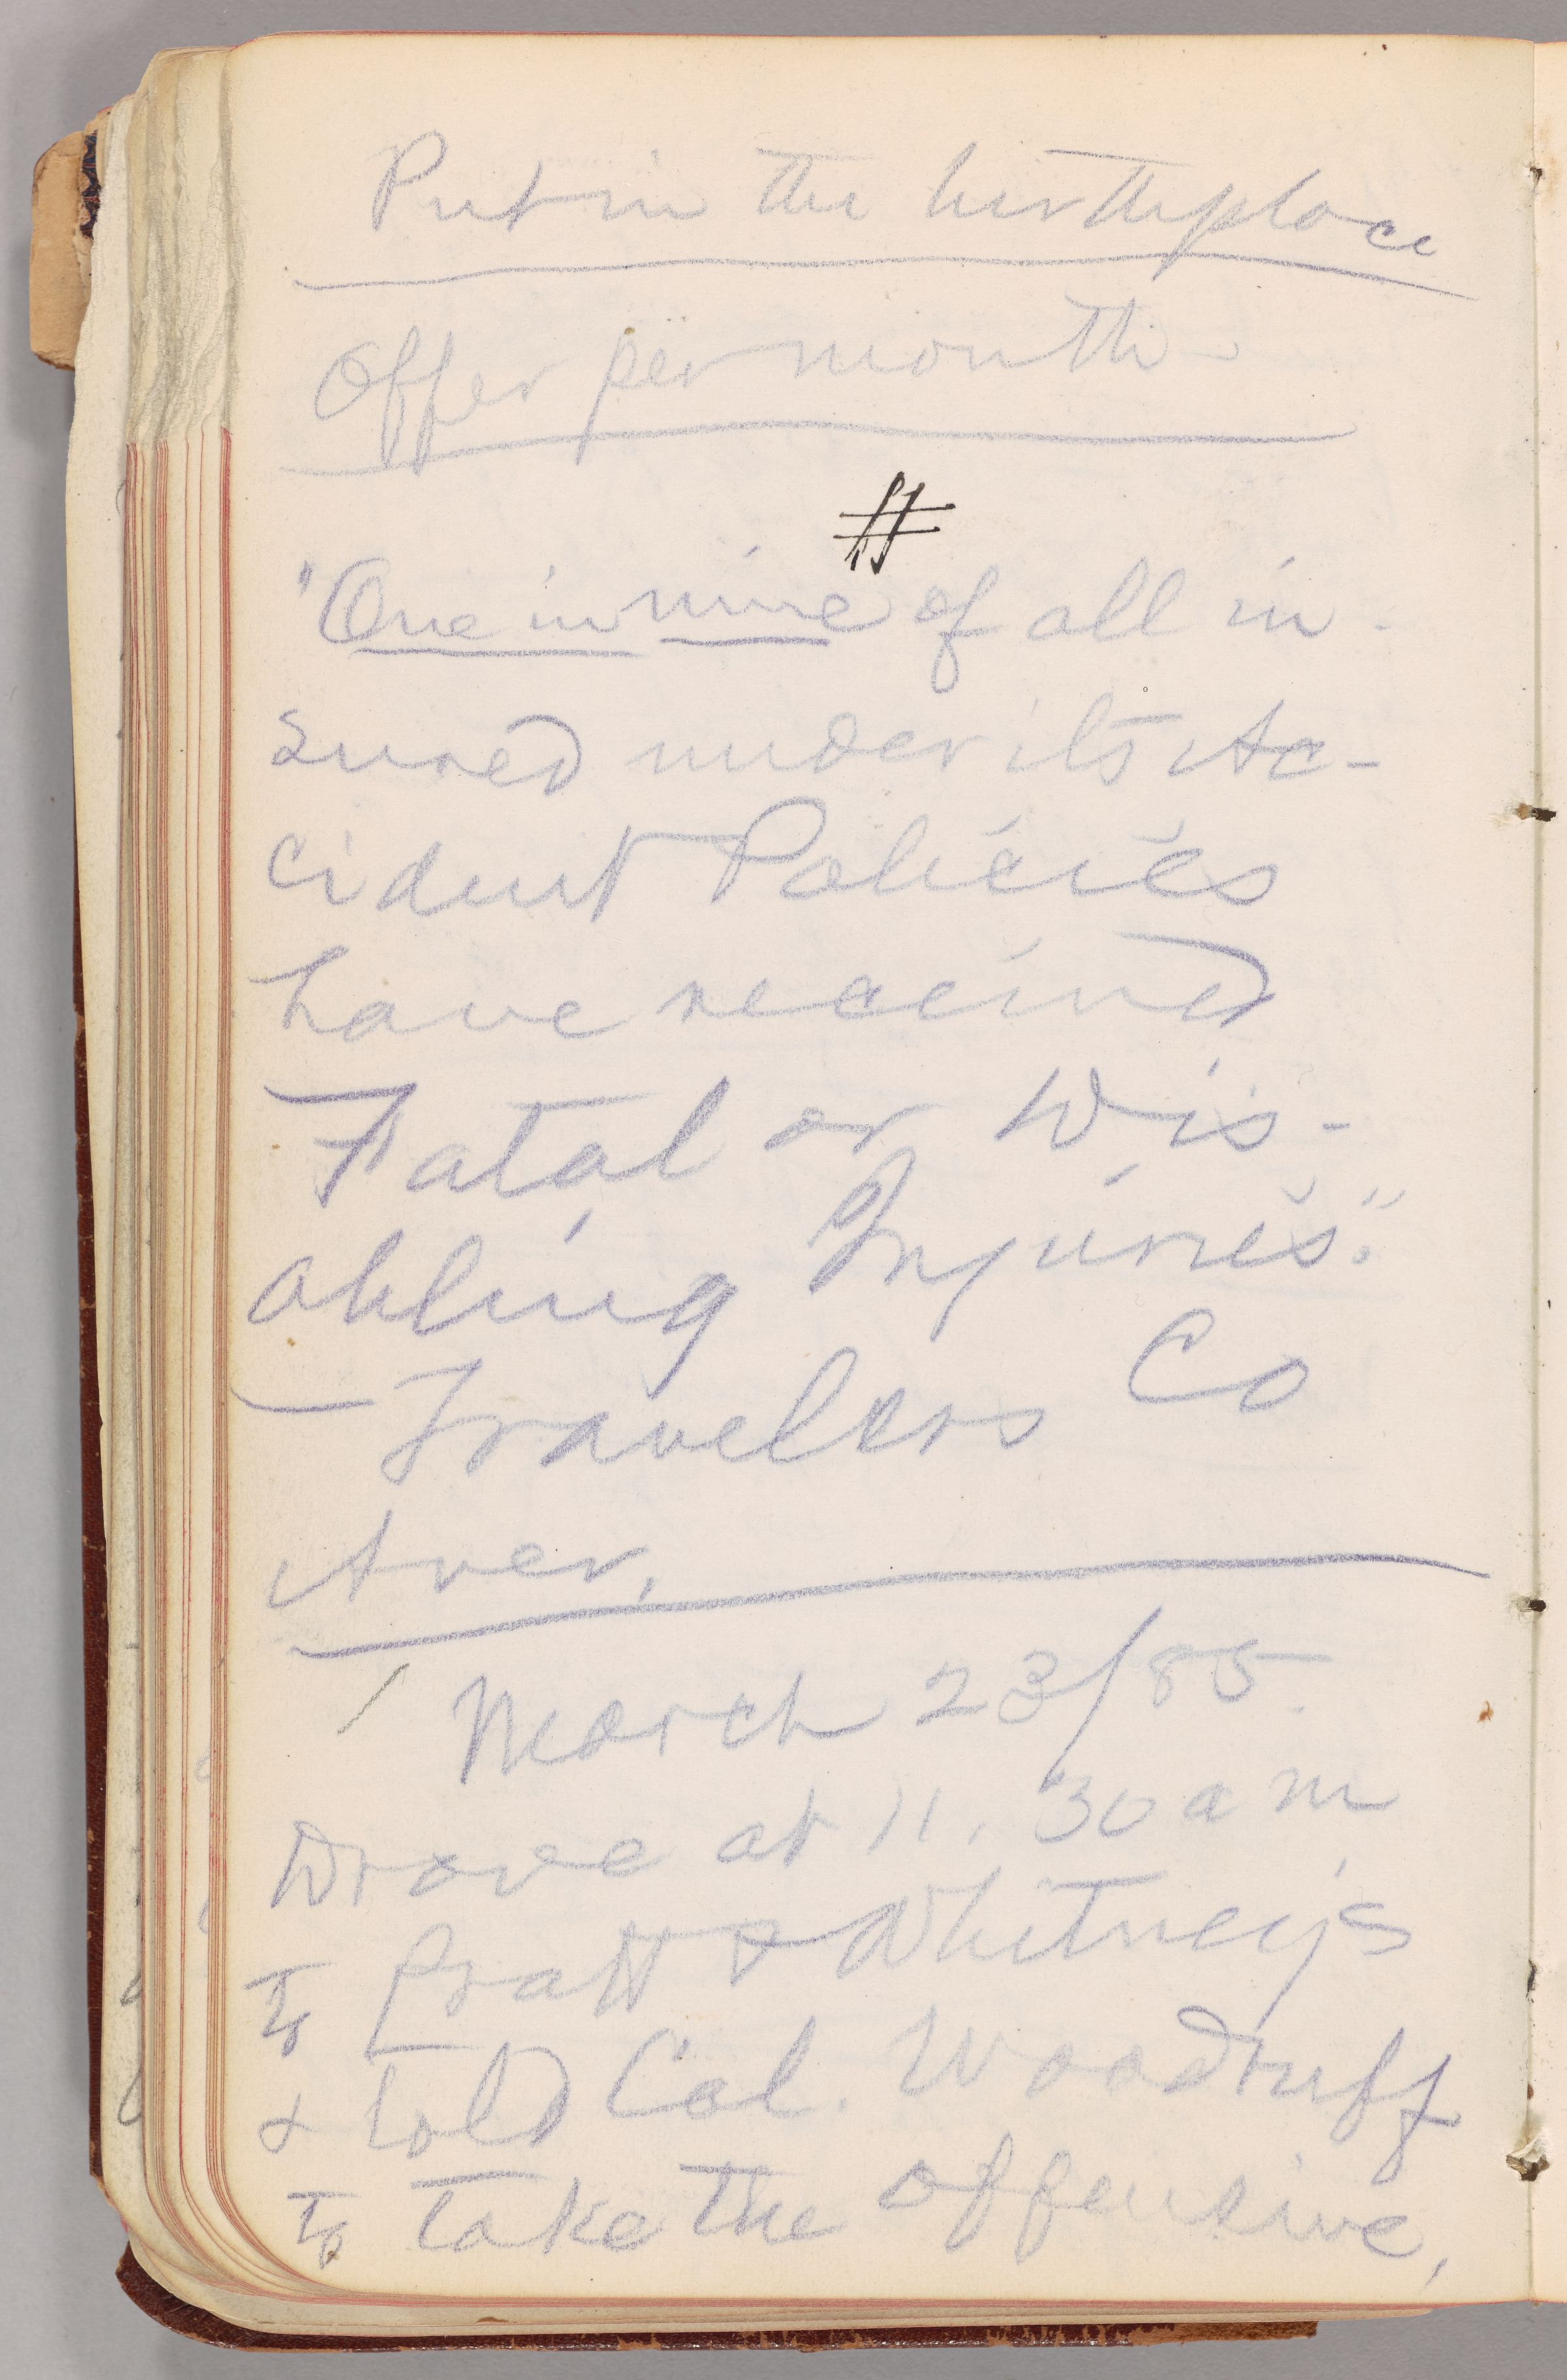 Put in the birthplace
Offer per month
#
"One in nine of all in-
sured under its Ac-
cident Policies
have received
Fatal or Dis-
abling Injuries."
—Travelers Co
Aver.
March 23/85.
Drove at 11.30 a m
to Pratt & Whitney's
& told Col. Woodruff
to take the offensive,